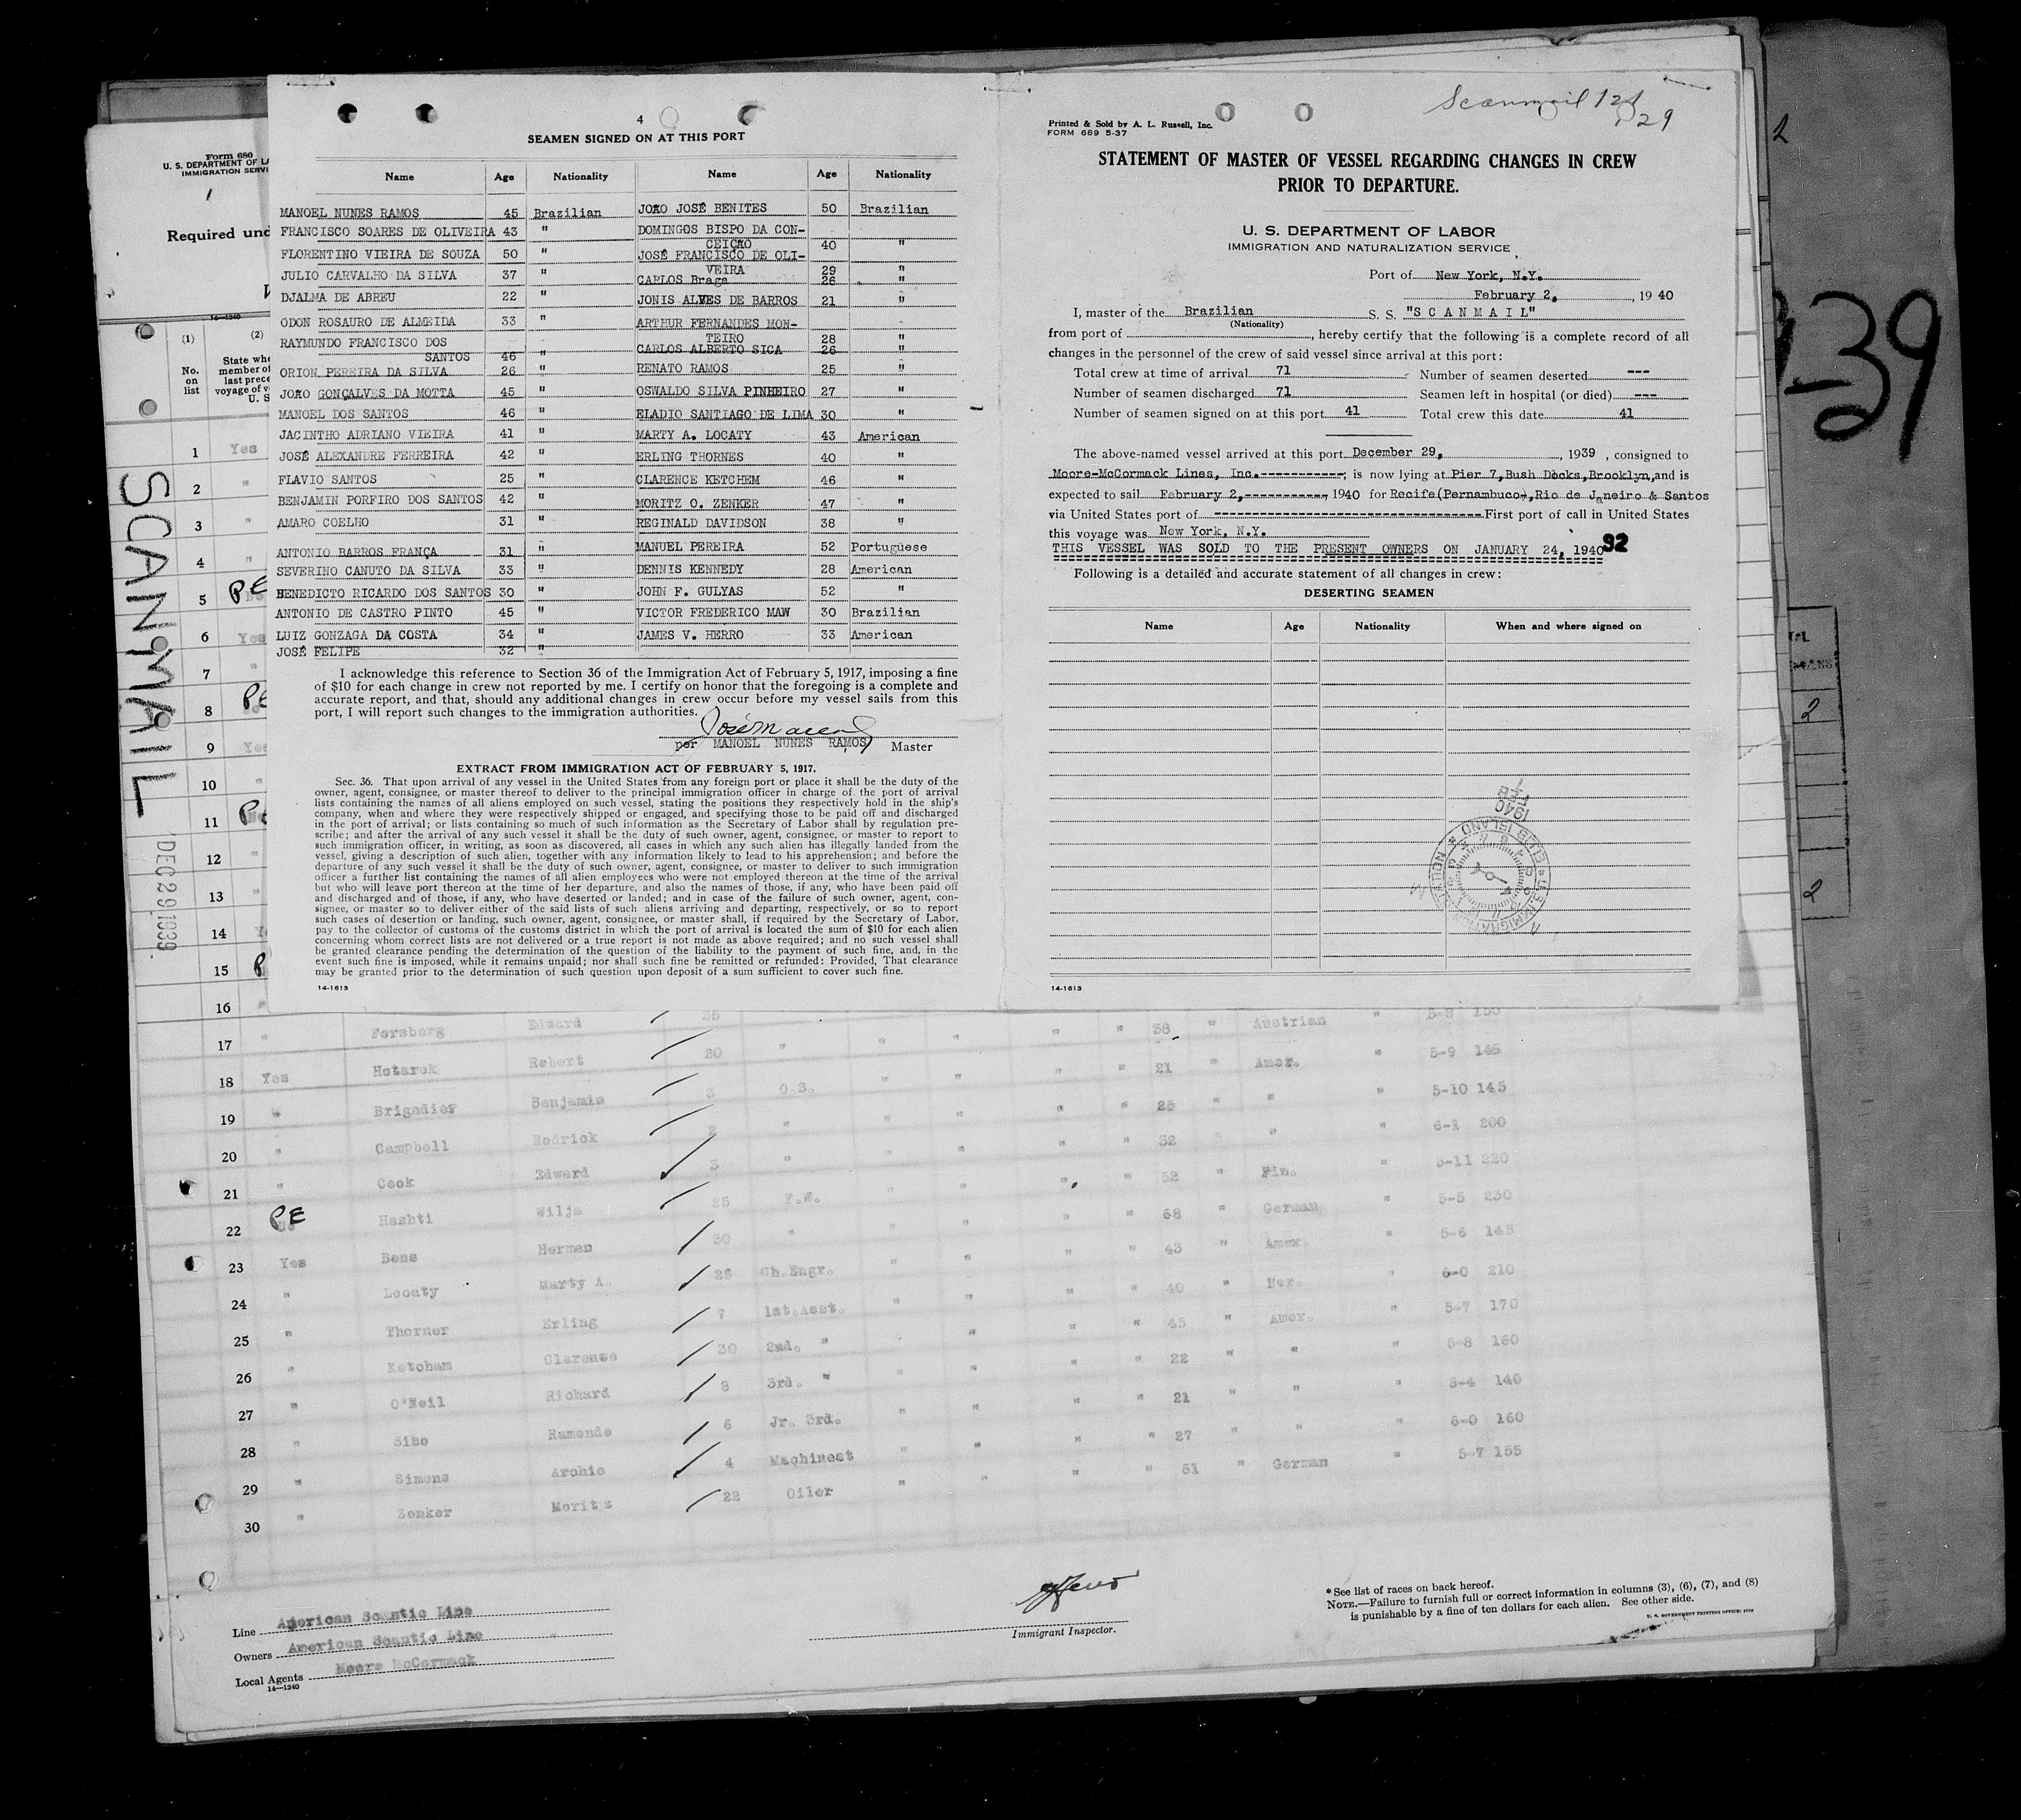 4
SEAMEN SIGNED ON AT THIS PORT
Name Age Nationality Name Age Nationality
MANOEL NUNES RAMOS 45 Brazilian
FRANCISCO SOARES DE OLIVEIRA 43 "
FLORENTINO VIEIRA DE SOUZA 50 "
JULIO CARVALHO DA SILVA 37 "
DJALMA DE ABREU 22 "
ODON ROSAURO DE ALMEIDA 33 "
RAYMUNDO FRANCISCO DOS
SANTOS 46 "
ORION PEREIRA DA SILVA 26 "
JOÃO GONÇALVES DA MOTTA 45 "
MANOEL DOS SANTOS 46 "
JACINTHO ADRIANO VIEIRA 41 "
JOSÉ ALEXANDRE FERREIRA 42 "
FLAVIO SANTOS 25 "
BENJAMIN PORFIRO DOS SANTOS 42 "
AMARO COELHO 31 "
ANTONIO BARROS FRANÇA 31 "
SEVERINO CANUTO DA SILVA 33 "
BENEDICTO RICARDO DOS SANTOS 30 "
ANTONIO DE CASTRO PINTO 45 "
LUIZ GONZAGA DA COSTA 34 "
JOSÉ FELIPE 32 "
JOÃO JOSÉ BENITES 50 Brazilian
DOMINGOS BISPO DA CON-
CEIÇÃO 40 "
JOSÉ FRANCISCO DE OLI-
VEIRA 29 "
CARLOS Braga 26 "
JONIS ALVES DE BARROS 21 "
ARTHUR FERNANDES MON-
TEIRO 28 "
CARLOS ALBERTO SICA 26 "
RENATO RAMOS 25 "
OSWALDO SILVA PINHEIRO 27 "
ELADIO SANTIAGO DE LIMA 30 "
MARTY A. LOCATY 43 American
ERLING THORNES 40 "
CLARENCE KETCHEM 46 "
MORITZ O. ZENKER 47 "
REGINALD DAVIDSON 38 "
MANUEL PEREIRA 52 Portuguese
DENNIS KENNEDY 28 American
JOHN F. GULYAS 52 "
VICTOR FREDERICO MAW 30 Brazilian
JAMES V. HERRO 33 American
I acknowledge this reference to Section 36 of the Immigration Act of February 5, 1917, imposing a fine
of $10 for each change in crew not reported by me. I certify on honor that the foregoing is a complete and
accurate report, and that, should any additional changes in crew occur before my vessel sails from this
port, I will report such changes to the immigration authorities.
por MANOEL NUNES RAMOS Master
EXTRACT FROM IMMIGRATION ACT OF FEBRUARY 5, 1917.
Sec. 36. That upon arrival of any vessel in the United States from any foreign port or place it shall be the duty of the
owner, agent, consignee, or master thereof to deliver to the principal immigration officer in charge of the port of arrival
lists containing the names of all aliens employed on such vessel, stating the positions they respectively hold in the ship's
company, when and where they were respectively shipped or engaged, and specifying those to be paid off and discharged
in the port of arrival; or lists containing so much of such information as the Secretary of Labor shall by regulation pre-
scribe; and after the arrival of any such vessel it shall be the duty of such owner, agent, consignee, or master to report to
such immigration officer, in writing, as soon as discovered, all cases in which any such alien has illegally landed from the
vessel, giving a description of such alien, together with any information likely to lead to his apprehension; and before the
departure of any such vessel it shall be the duty of such owner, agent, consignee, or master to deliver to such immigration
officer a further list containing the names of all alien employees who were not employed thereon at the time of the arrival
but who will leave port thereon at the time of her departure, and also the names of those, if any, who have been paid off
and discharged and of those, if any, who have deserted or landed; and in case of the failure of such owner, agent, con-
signee, or master so to deliver either of the said lists of such aliens arriving and departing, respectively, or so to report
such cases of desertion or landing, such owner, agent, consignee, or master shall, if required by the Secretary of Labor,
pay to the collector of customs of the customs district in which the port of arrival is located the sum of $10 for each alien
concerning whom correct lists are not delivered or a true report is not made as above required; and no such vessel shall
be granted clearance pending the determination of the question of the liability to the payment of such fine, and, in the
event such fine is imposed, while it remains unpaid; nor shall such fine be remitted or refunded: Provided, That clearance
may be granted prior to the determination of such question upon deposit of a sum sufficient to cover such fine.
14-1613
Scanmail 12/29
Printed & Sold by A. L. Russell, Inc.
FORM 689 5-37
STATEMENT OF MASTER OF VESSEL REGARDING CHANGES IN CREW
PRIOR TO DEPARTURE.
U. S. DEPARTMENT OF LABOR
IMMIGRATION AND NATURALIZATION SERVICE
Port of New York, N.Y.
February 2, , 1940
I, master of the Brazilian S. S. "SCANMAIL"
(Nationality)
from port of , hereby certify that the following is a complete record of all
changes in the personnel of the crew of said vessel since arrival at this port:
Total crew at time of arrival 71 Number of seamen deserted ---
Number of seamen discharged 71 Seamen left in hospital (or died) ---
Number of seamen signed on at this port 41 Total crew this date 41
The above-named vessel arrived at this port December 29, , 1939 , consigned to
Moore-McCormack Lines, Inc.-----------; is now lying at Pier 7,Bush Docks,Brooklyn,and is
expected to sail February 2,-----------, 1940 for Recife(Pernambuco),Rio de Janeiro & Santos
via United States port of ------------------------------------ First port of call in United States
this voyage was New York, N.Y.
THIS VESSEL WAS SOLD TO THE PRESENT OWNERS ON JANUARY 24, 1940 92
Following is a detailed and accurate statement of all changes in crew:
DESERTING SEAMEN
Name Age Nationality When and where signed on
1940
FEB
U.S. IMMIGRATION
ELLIS ISLAND
14-1613
Form 680
U. S. DEPARTMENT OF LA
IMMIGRATION SERVI
Required und
14-1240
(1) (2)
No. on list
State whe
member of
last prece
voyage of v
U. S
SCANMAIL
DEC 29 1939
1 Yes
2 "
3 "
4 "
5 PE
6 Yes
7 "
8 PE
9 Yes
10 "
11 PE
12 "
13 "
14
15
16 "
17 " Forsberg Edward 35 " " " " " 38 " Austrian " 5-8 150
18 Yes Hotarek Robert 20 " " " " 21 " Amer. " 5-9 145
19 " Brigadier Benjamin 3 O.S. " " " " 25 " " " 5-10 145
20 " Campbell Rodrick 2 " " " " " 32 " " " 6-1 200
21 " Cook Edward 3 " " " " " 52 " Fin. " 5-11 220
22 PE Hashti Wilja 25 F.W. " " " " 68 " German " 5-5 230
23 Yes Bens Herman 30 " " " " " 43 " Amer. " 5-6 145
24 " Locaty Marty A. 26 Ch.Engr. " " " " 40 " Nor. " 6-0 210
25 " Thorner Erling 7 1st.Asst. " " " " 45 " Amer. " 5-7 170
26 " Ketcham Clarence 30 2nd. " " " " " 22 " " " 5-8 160
27 " O'Neil Richard 8 3rd. " " " " " 21 " " " 5-4 140
28 " Sise Ramonde 6 Jr. 3rd. " " " " 27 " " " 6-0 160
29 " Simons Archie 4 Machinest " " " " 61 " German " 5-7 155
30 " Zenker Moritz 22 Oiler "
Line American Scantic Line
Owners American Scantic Line
Local Agents Moore McCormack
14-1240
Immigrant Inspector.
*See list of races on back hereof.
NOTE.—Failure to furnish full or correct information in columns (3), (6), (7), and (8)
is punishable by a fine of ten dollars for each alien. See other side.
U. S. GOVERNMENT PRINTING OFFICE
2
-39
2
2